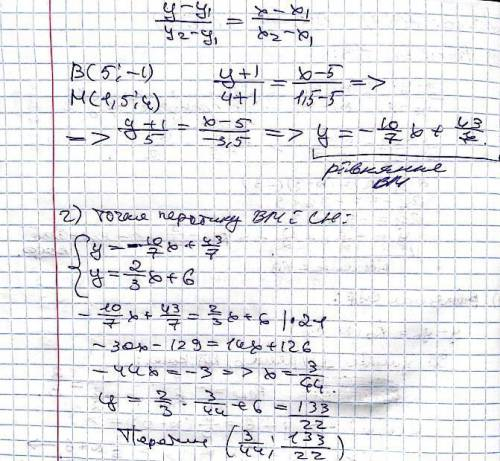 (y-y₁)/(y₂-y₁) = (x-x₁)/(x₂-x₁)
B(5;-1) (y+1)/(4+1) = (x-5)/(1,5-5) =>
M(1,5;4)
=> (y+1)/5 = (x-5)/(-3,5) => y = -10/7 x + 43/7
рівняння
BM
2) Точка перетину BM і CH:
{ y = -10/7 x + 43/7
y = 2/3 x + 6
-10/7 x + 43/7 = 2/3 x + 6 |·21
-30x - 129 = 14x + 126
-44x = -3 => x = 3/44
y = 2/3 · 3/44 + 6 = 133/22
Перетин (3/44; 133/22)